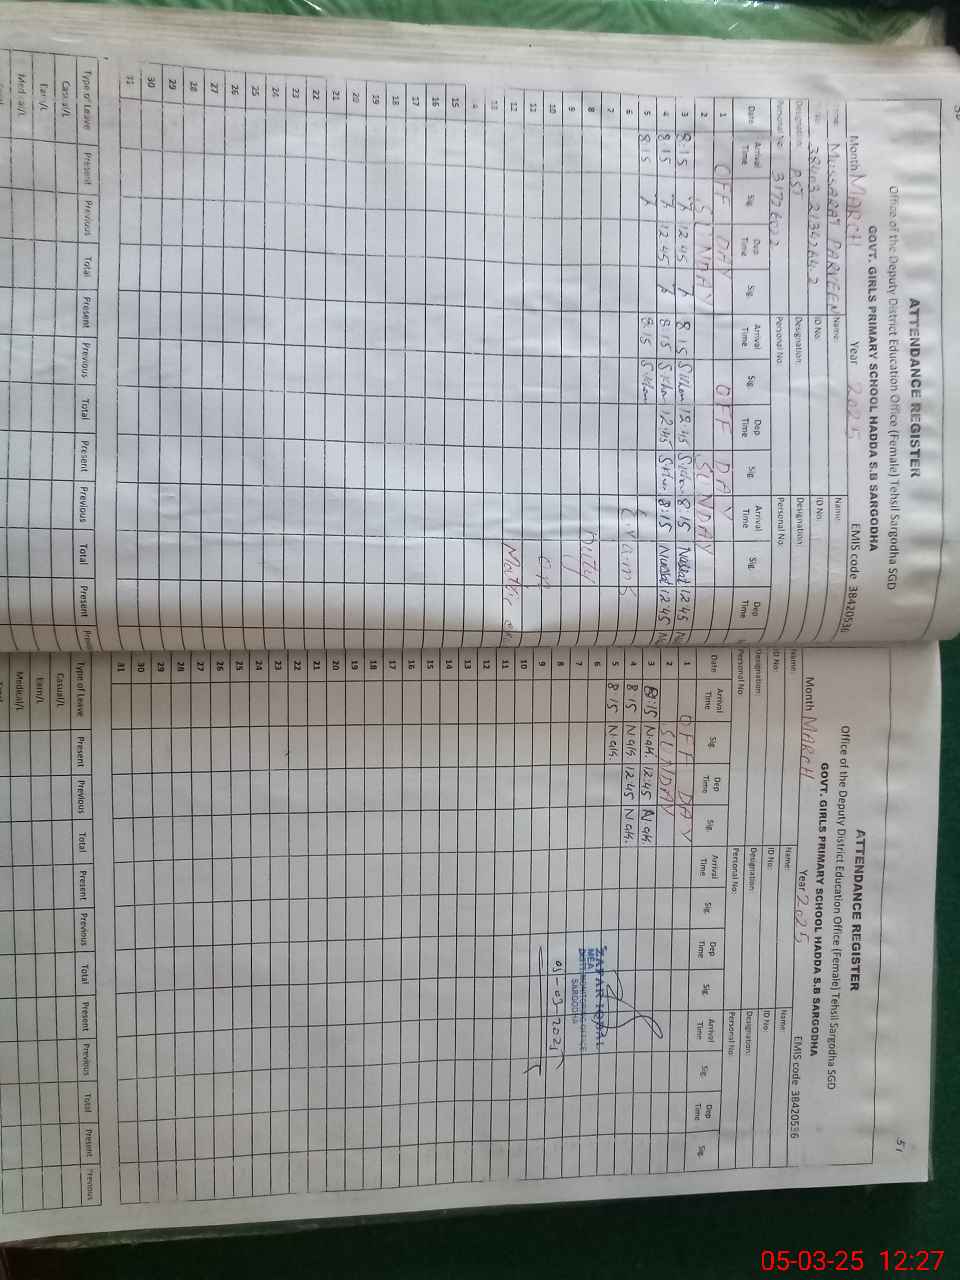 ATTENDANCE REGISTER
Office of the Deputy District Education Office (Female) Tehsil Sargodha SGD
GOVT. GIRLS PRIMARY SCHOOL HADDA S.B SARGODHA
Month MARCH Year 2025 EMIS code 38420536
MUSSARAT PARVEEN Name: Name:
ID No: ID No:
Designation: PST Designation: Designation:
Personal No: 31726022 Personal No: Personal No:
Date Arrival Time Sig. Dep Time Sig. Arrival Time Sig. Dep Time Sig. Arrival Time Sig. Dep Time
1 OFF DAY OFF DAY
2 SUNDAY SUNDAY
3 8:15 12:45 8:15 12:45 8:15 12:45
4 8:15 12:45 8:15 12:45 8:15 12:45
5 8:15 8:15
6 Exams
7
8 Duty
9
10 on
11
12 Matric
13
14
15
16
17
18
19
20
21
22
23
24
25
26
27
28
29
30
31
Type of Leave Present Previous Total Present Previous Total Present Previous Total Present
Casual/L
Earn/L
Medical/L
51
ATTENDANCE REGISTER
Office of the Deputy District Education Office (Female) Tehsil Sargodha SGD
GOVT. GIRLS PRIMARY SCHOOL HADDA S.B SARGODHA
Month MARCH Year 2025 EMIS code 38420536
Name: Name: Name:
ID No: ID No: ID No:
Designation: Designation: Designation:
Personal No: Personal No: Personal No:
Date Arrival Time Sig. Dep Time Sig. Arrival Time Sig. Dep Time Sig. Arrival Time Sig. Dep Time Sig.
1 OFF DAY
2 SUNDAY
3 8:15 12:45
4 8:15 12:45
5 8:15
6 ZAFAR IQBAL
7 MEA
DISTT. MONITORING OFFICE
SARGODHA
8 05-03-2025
9
10
11
12
13
14
15
16
17
18
19
20
21
22
23
24
25
26
27
28
29
30
31
Type of Leave Present Previous Total Present Previous Total Present Previous Total Present Previous
Casual/L
Earn/L
Medical/L
05-03-25 12:27